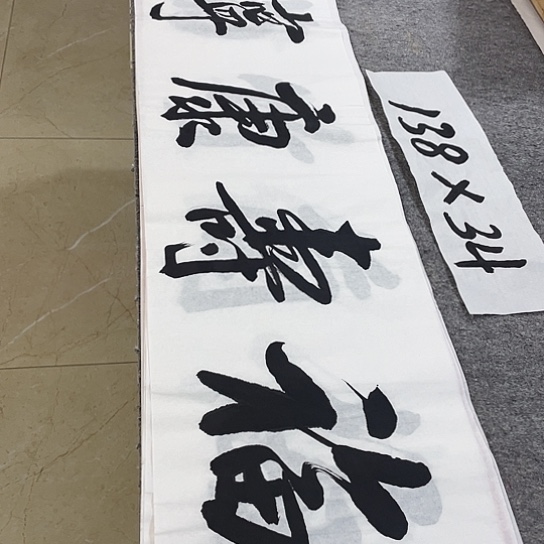 福壽康寧
138×34